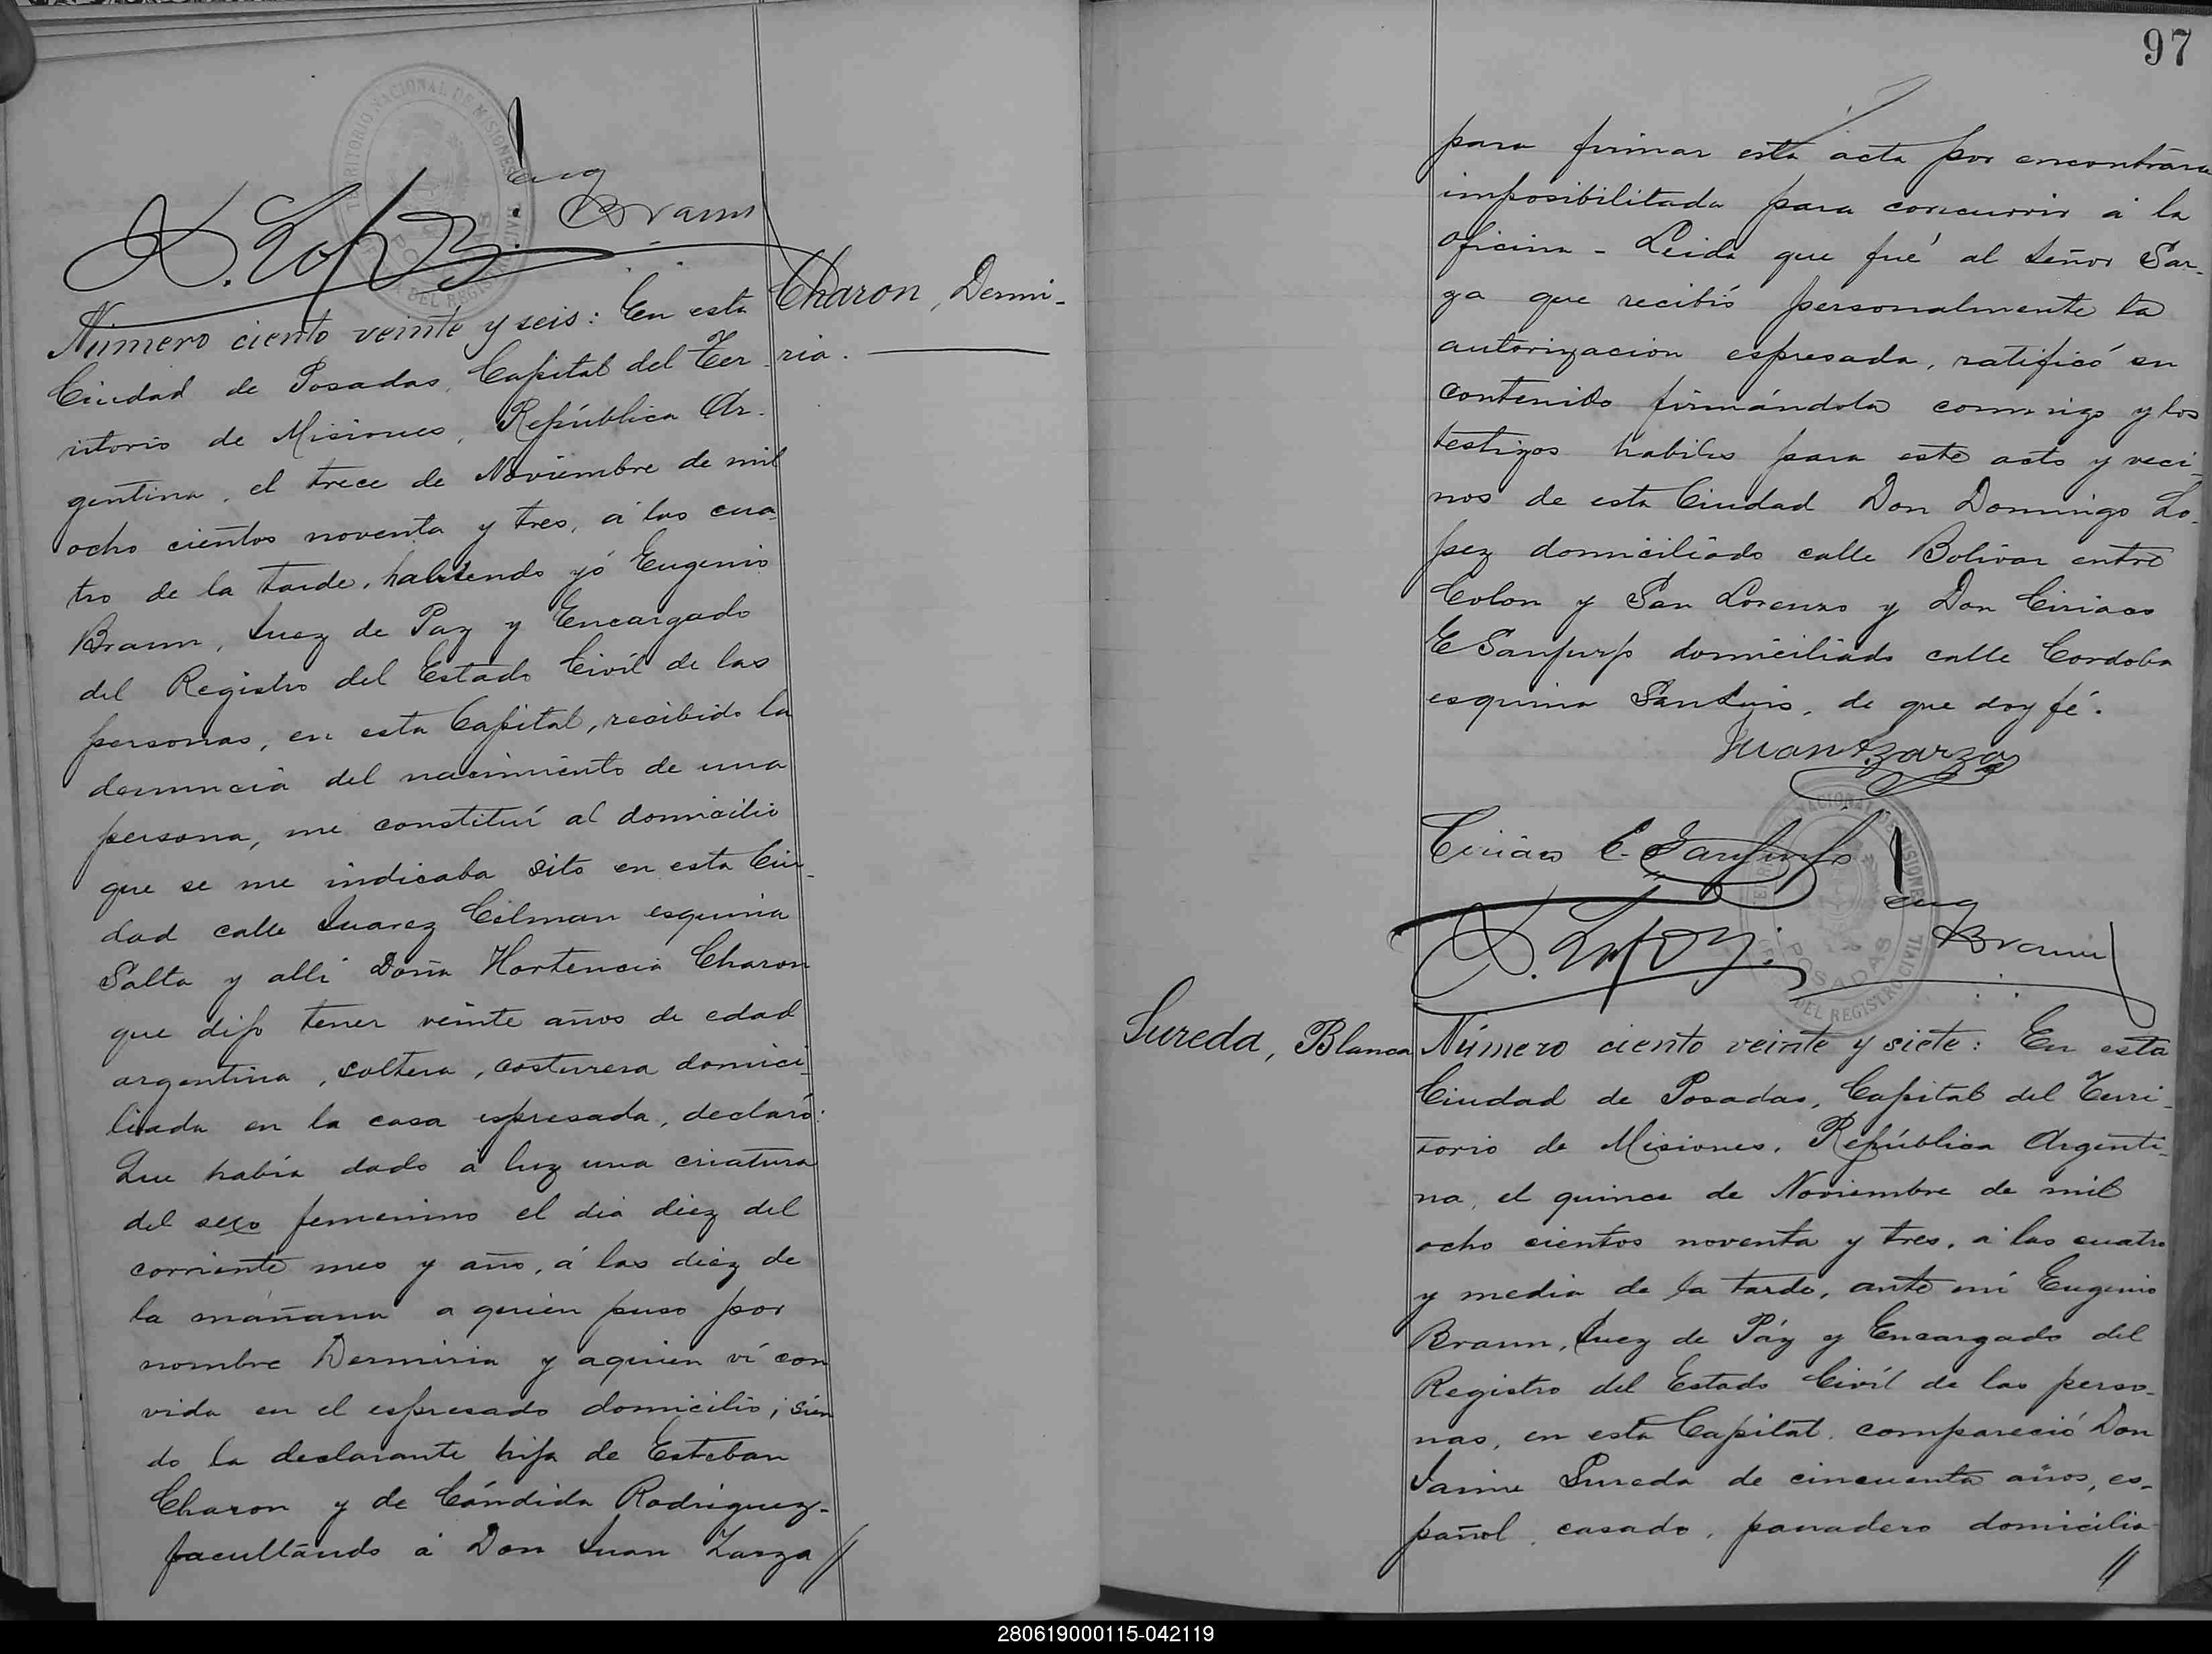 Eug
Braun
D. Lopez
TERRITORIO NACIONAL DE MISIONES
Charon, Dermi-
ria.
Número ciento veinte y seis: En esta
Ciudad de Posadas, Capital del Ter-
ritorio de Misiones, República Ar-
gentina, el trece de Noviembre de mil
ocho cientos noventa y tres, á las cua-
tro de la tarde, habiendo yó Eugenio
Braun, Juez de Paz y Encargado
del Registro del Estado Civíl de las
personas, en esta Capital, recibido la
denuncia del nacimiento de una
persona, me constituí al domicilio
que se me indicaba sito en esta Ciu-
dad calle Juarez Celman esquina
Salta y allí Doña Hortencia Charon
que dijo tener veinte años de edad
argentina, soltera, costurera domici-
liada en la casa espresada, declaró:
Que había dado á luz una criatura
del sexo femenino el dia diez del
corriente mes y año, á las diez de
la mañana a quien puso por
nombre Dermiria y aquien ví con
vida en el espresado domicilio; sien
do la declarante hija de Esteban
Charon y de Cándida Rodriguez-
facultando á Don Juan Zarza //
97
para firmar esta acta por encontrarse
imposibilitada para concurrir á la
oficina - Leida que fué al señor Sar-
za que recibió personalmente la
autorizacion espresada, ratificó su
contenido firmándola conmigo y los
testigos habiles para este acto y veci-
nos de esta Ciudad Don Domingo Lo-
pez domiciliado calle Bolivar entre
Colon y San Lorenzo y Don Ciriaco
E Sanjurjo domiciliado calle Cordoba
esquina San Luis, de que doy fé.
Juan Zarza
Ciriaco E. Sanjurjo
Eug
Braun
D. Lopez
NACIONAL DE MISIONES
POSADAS
DEL REGISTRO CIVIL
Sureda, Blanca
Número ciento veinte y siete: En esta
Ciudad de Posadas, Capital del Terri-
torio de Misiones, República Argenti-
na, el quince de Noviembre de mil
ocho cientos noventa y tres, á las cuatro
y media de la tarde, ante mí Eugenio
Braun, Juez de Páz y Encargado del
Registro del Estado Civíl de las perso-
nas, en esta Capital, compareció Don
Jaime Sureda de cincuenta años, es-
pañol, casado, panadero domicilia-
//
280619000115-042119